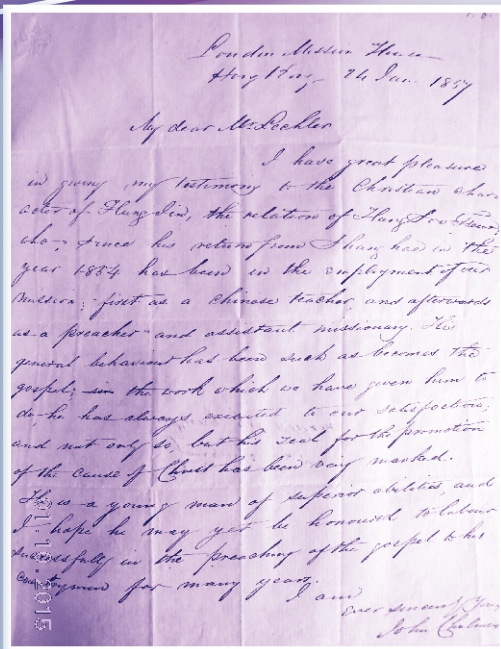 London Mission House
Hong Kong 24 Jan. 1857
My dear Mr. Lechler
I have great pleasure
in giving my testimony to the Christian char-
acter of Hung Jin, the relation of Hung Sow Tsuen,
who, since his return from Shanghae in the
year 1854 has been in the employment of our
mission; first as a Chinese teacher, and afterwards
as a preacher and assistant missionary. His
general behaviour has been such as becomes the
gospel; the work which we have given him to
do, he has always executed to our satisfaction;
and not only so, but his zeal for the promotion
of the cause of Christ has been very marked.
He is a young man of superior abilities, and
I hope he may yet be honoured to labour
successfully in the preaching of the gospel to his
countrymen for many years.
I am
ever sincerely Yours
John Chalmers
01.16.2015